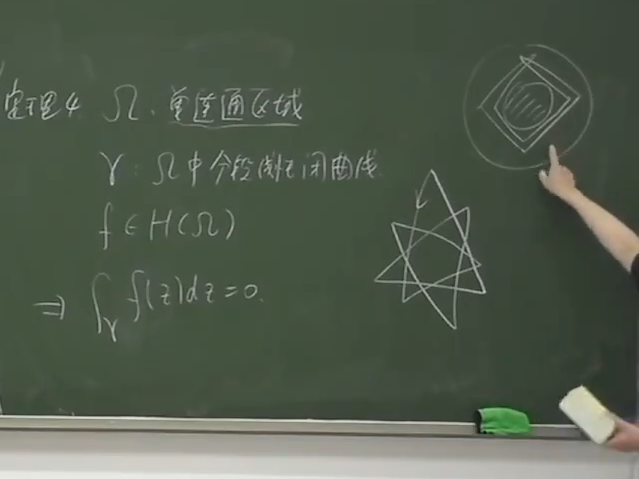 定理4. Ω. 单连通区域
γ: Ω中分段线性闭曲线
f ∈ H(Ω)
⇒ ∫_γ f(z)dz = 0.